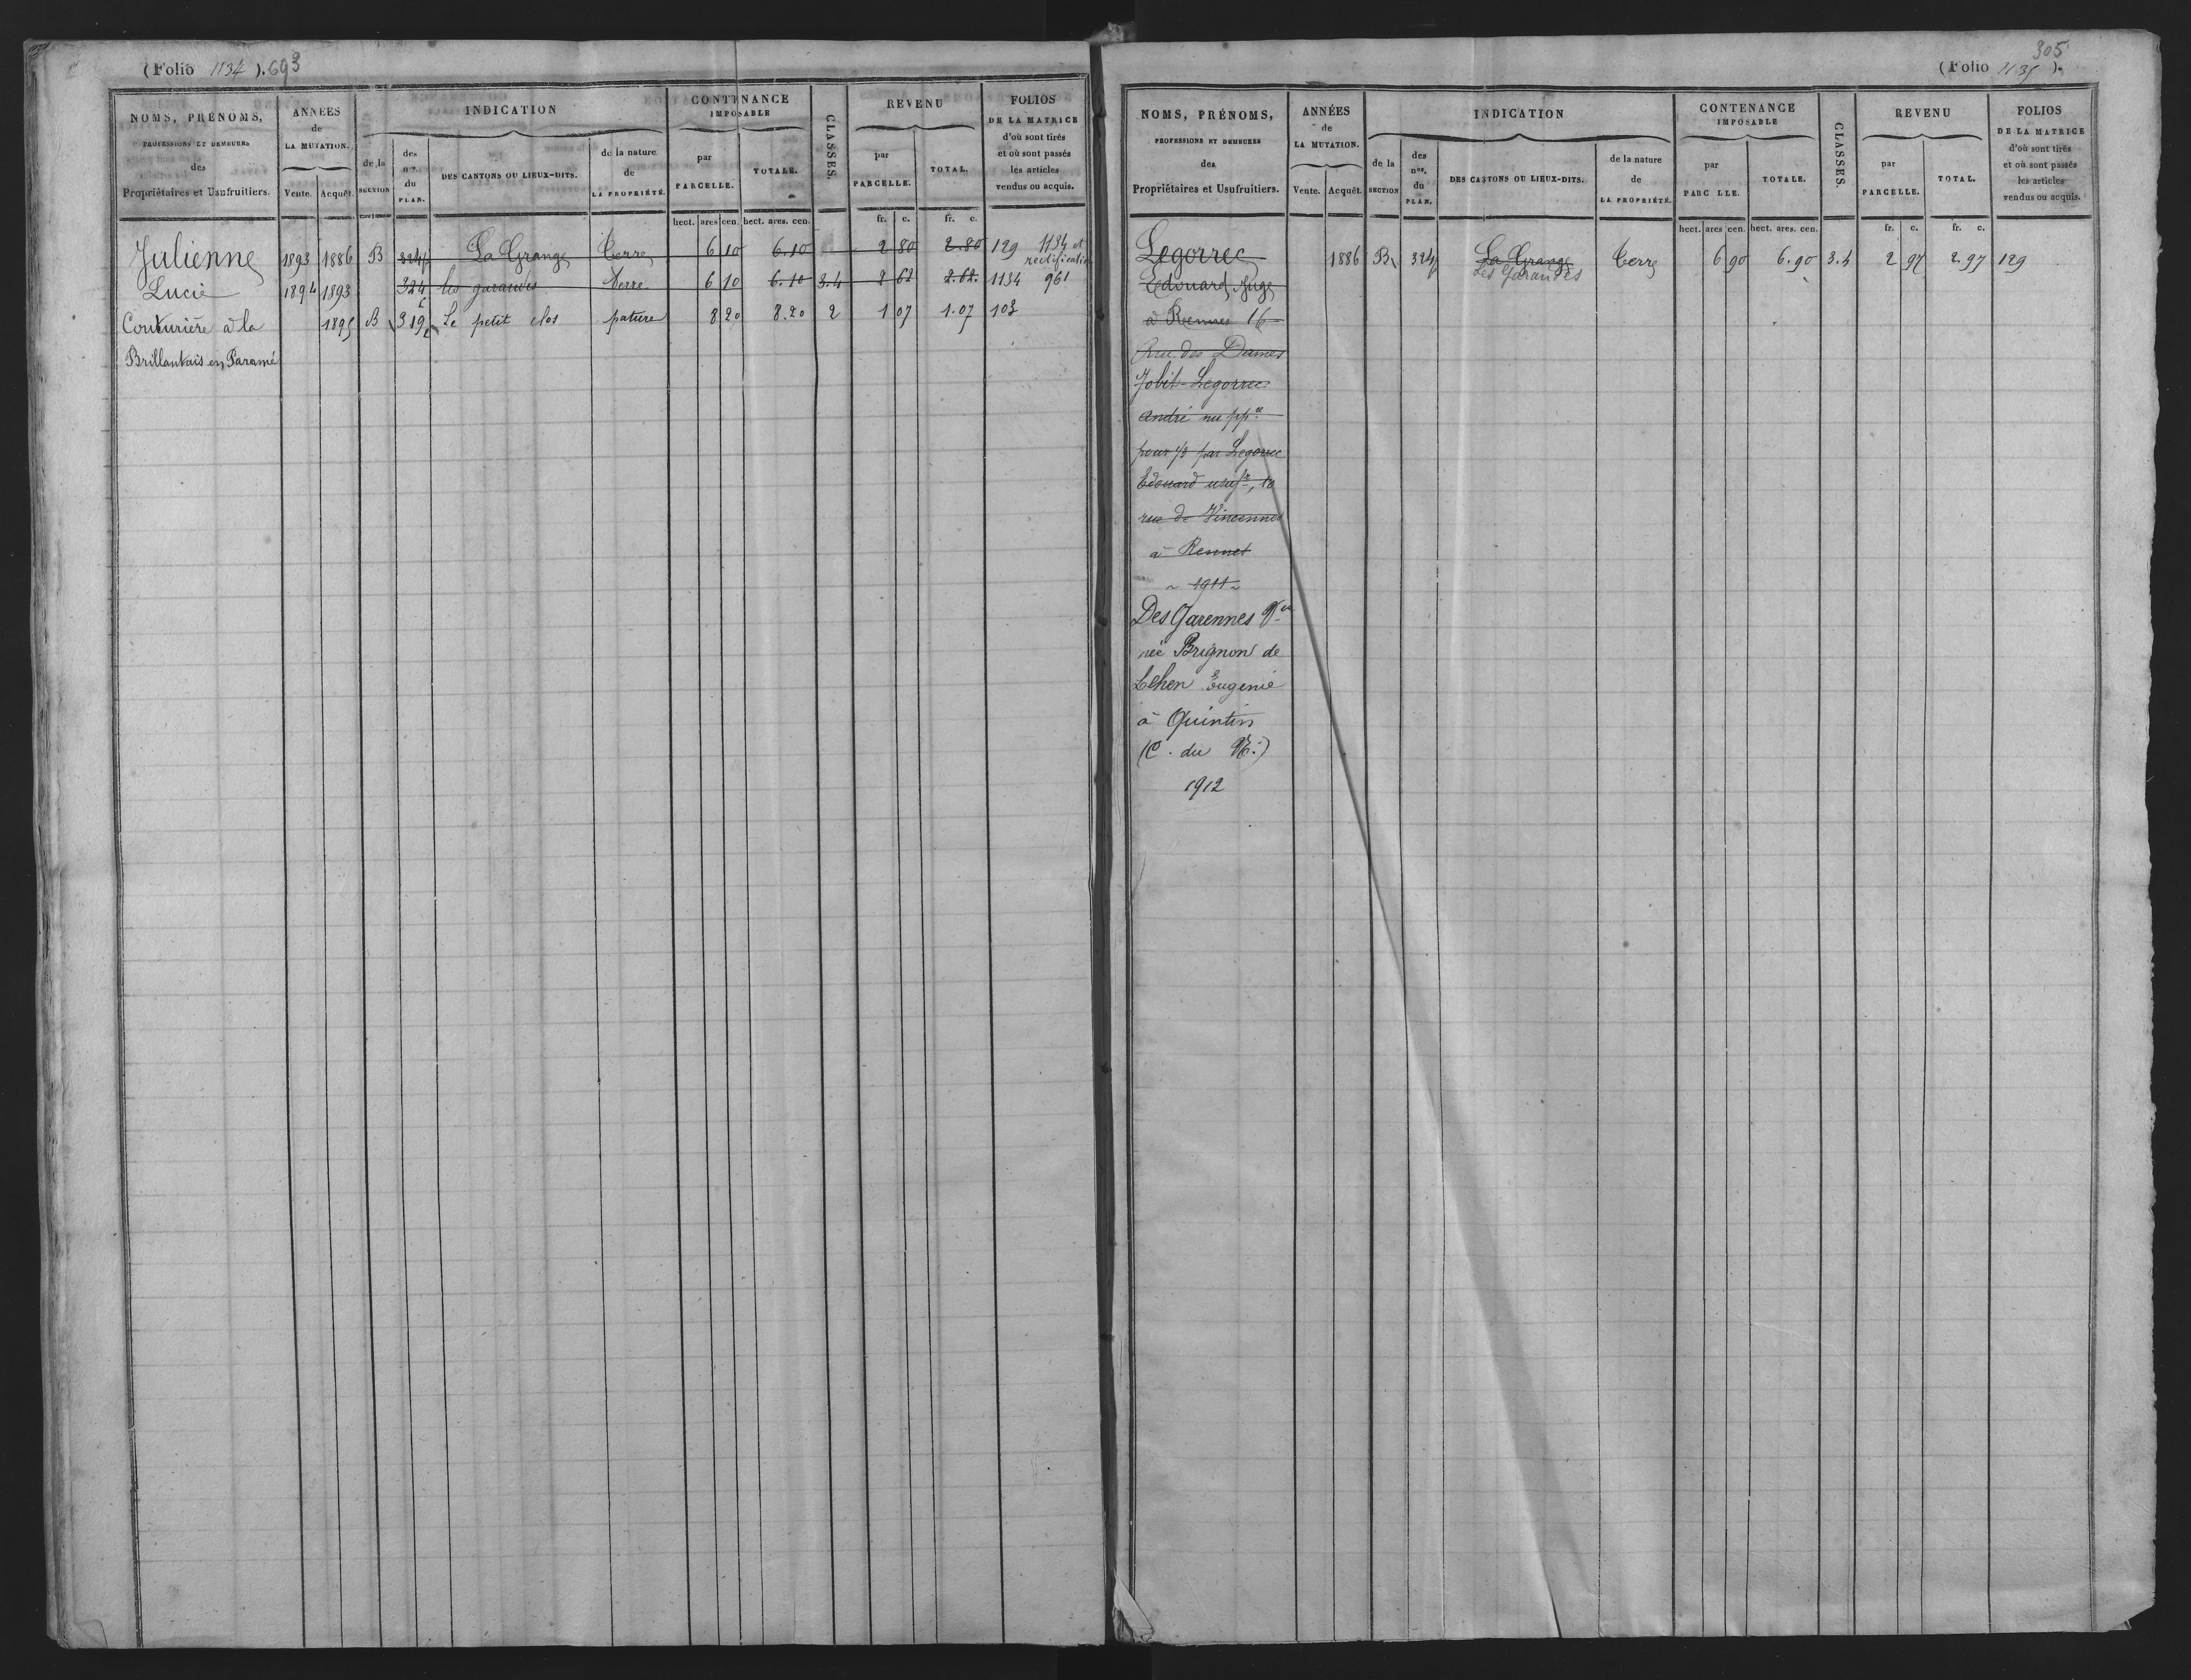 (Folio 1134 ). 693
NOMS, PRÉNOMS,
PROFESSIONS ET DEMEURES
des
Propriétaires et Usufruitiers.
ANNÉES
de
LA MUTATION.
Vente. Acquêt.
INDICATION
de la
SECTION
des
nos.
du
PLAN.
DES CANTONS OU LIEUX-DITS.
de la nature
de
LA PROPRIÉTÉ.
CONTENANCE
IMPOSABLE
par
PARCELLE.
TOTALE.
CLASSES.
REVENU
par
PARCELLE.
TOTAL.
FOLIOS
DE LA MATRICE
d'où sont tirés
et où sont passés
les articles
vendus ou acquis.
hect. ares cen. hect. ares. cen. fr. c. fr. c.
Julienne 1893 1886 B 324p La Grange Terre 6 10 6.10 2 80 2.80 129 1134 et
rectification
Lucie 1894 1893 324 les garandes Terre 6 10 6.10 3.4 2 62 2.62. 1134 961
Couturière à la 1895 B 319 Le petit clos pature 8 20 8.20 2 1 07 1.07 103
Brillantais en Paramé
305
(Folio 1135 ).
NOMS, PRÉNOMS,
PROFESSIONS ET DEMEURES
des
Propriétaires et Usufruitiers.
ANNÉES
de
LA MUTATION.
Vente. Acquêt.
INDICATION
de la
SECTION
des
nos.
du
PLAN.
DES CANTONS OU LIEUX-DITS.
de la nature
de
LA PROPRIÉTÉ.
CONTENANCE
IMPOSABLE
par
PARC LLE.
TOTALE.
CLASSES.
REVENU
par
PARCELLE.
TOTAL.
FOLIOS
DE LA MATRICE
d'où sont tirés
et où sont passés
les articles
vendus ou acquis.
hect. ares cen. hect. ares. cen. fr. c. fr. c.
Legorrec 1886 B 324p La Grange Terre 6 90 6.90 3.4 2 97 2.97 129
Les Garandes
Edouard Juge
à Rennes 16
Rue des Dames
Jobit-Legorrec
André nu ppre
pour 1/3 par Legorrec
Edouard usufr, 10
rue de Vincennes
à Rennes
1911
Des Garennes Vve
née Brignon de
Lehen Eugenie
à Quintin
(C. du N.)
1912